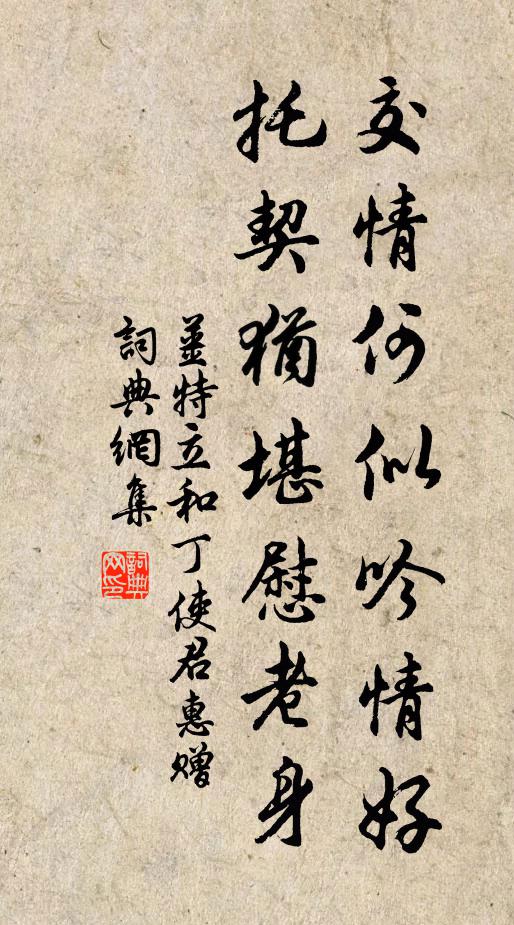 交情何似吟情好
托契猶堪慰老身
姜特立和丁使君惠贈
詞典網集
詞典網印